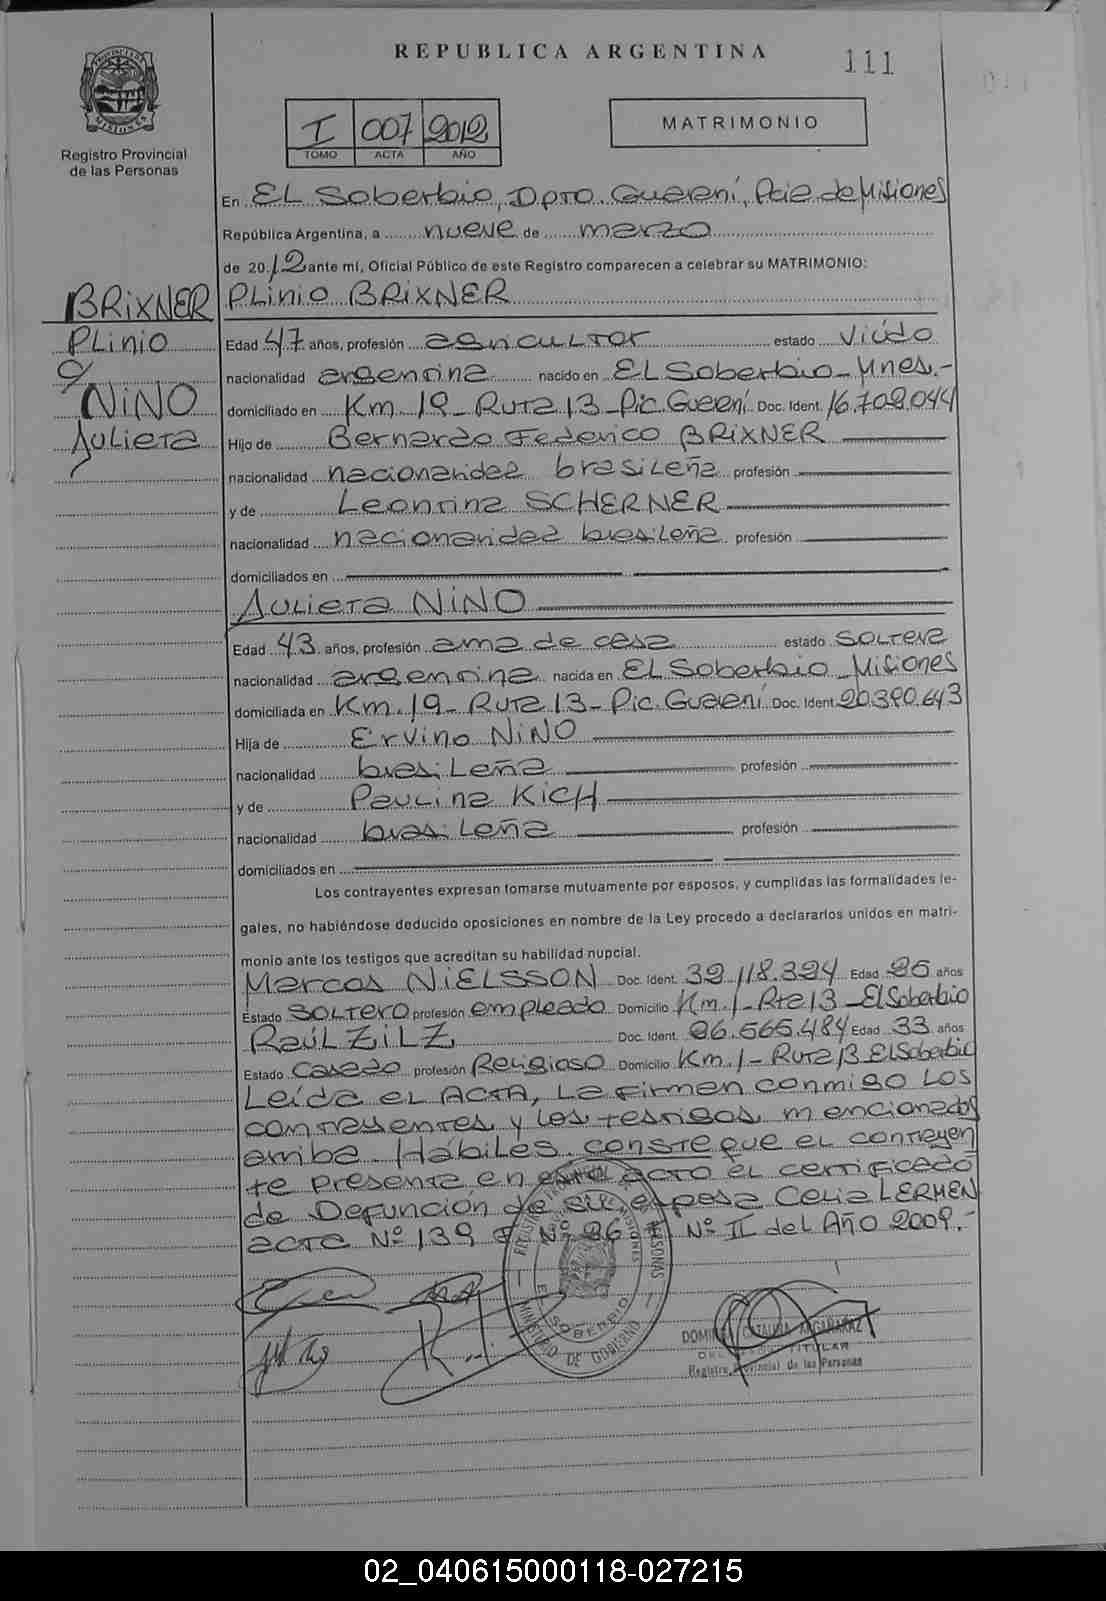 REPUBLICA ARGENTINA
111
PROVINCIA DE MISIONES
Registro Provincial
de las Personas
I 007 2012
TOMO ACTA AÑO
MATRIMONIO
En EL Soberbio, Dpto. Guaraní, Pcia de Misiones
República Argentina, a nueve de marzo
de 2012 ante mí, Oficial Público de este Registro comparecen a celebrar su MATRIMONIO:
BRIXNER
PLinio
c/
NINO
Julieta
PLinio BRIXNER
Edad 47 años, profesión agricultor estado Viudo
nacionalidad argentina nacido en EL Soberbio - Mnes.-
domiciliado en Km. 19 - Ruta 13 - Pic. Guaraní Doc. Ident. 16.708.044
Hijo de Bernardo Federico BRIXNER
nacionalidad nacionalidad brasileña profesión
y de Leontina SCHERNER
nacionalidad nacionalidad brasileña profesión
domiciliados en
Julieta NINO
Edad 43 años, profesión ama de casa estado soltera
nacionalidad argentina nacida en EL Soberbio - Misiones
domiciliada en Km. 19 - Ruta 13 - Pic. Guaraní Doc. Ident. 20.390.643
Hija de Ervino NINO
nacionalidad brasileña profesión
y de Paulina KICH
nacionalidad brasileña profesión
domiciliados en
Los contrayentes expresan tomarse mutuamente por esposos, y cumplidas las formalidades le-
gales, no habiéndose deducido oposiciones en nombre de la Ley procedo a declararlos unidos en matri-
monio ante los testigos que acreditan su habilidad nupcial.
Marcos NIELSSON Doc. Ident. 32.118.324 Edad 25 años
Estado SOLTERO profesión empleado Domicilio Km. 1 - Rta 13 - El Soberbio
Raúl ZILZ Doc. Ident. 26.565.484 Edad 33 años
Estado Casado profesión Religioso Domicilio Km. 1 - Ruta 13 El Soberbio
Leída el ACTA, La firman conmigo Los
contrayentes y los testigos mencionados
arriba. Hábiles. conste que el contrayen
te presenta en este acto el certificado
de Defunción de su esposa Celia LERMEN
acta Nº 139 Nº 26 Nº II del Año 2009.-
REGISTRO PROVINCIAL DE LAS PERSONAS
MISIONES
EL SOBERBIO
MINISTERIO DE GOBIERNO
CATALINA
TITULAR
Registro Provincial de las Personas
02_040615000118-027215